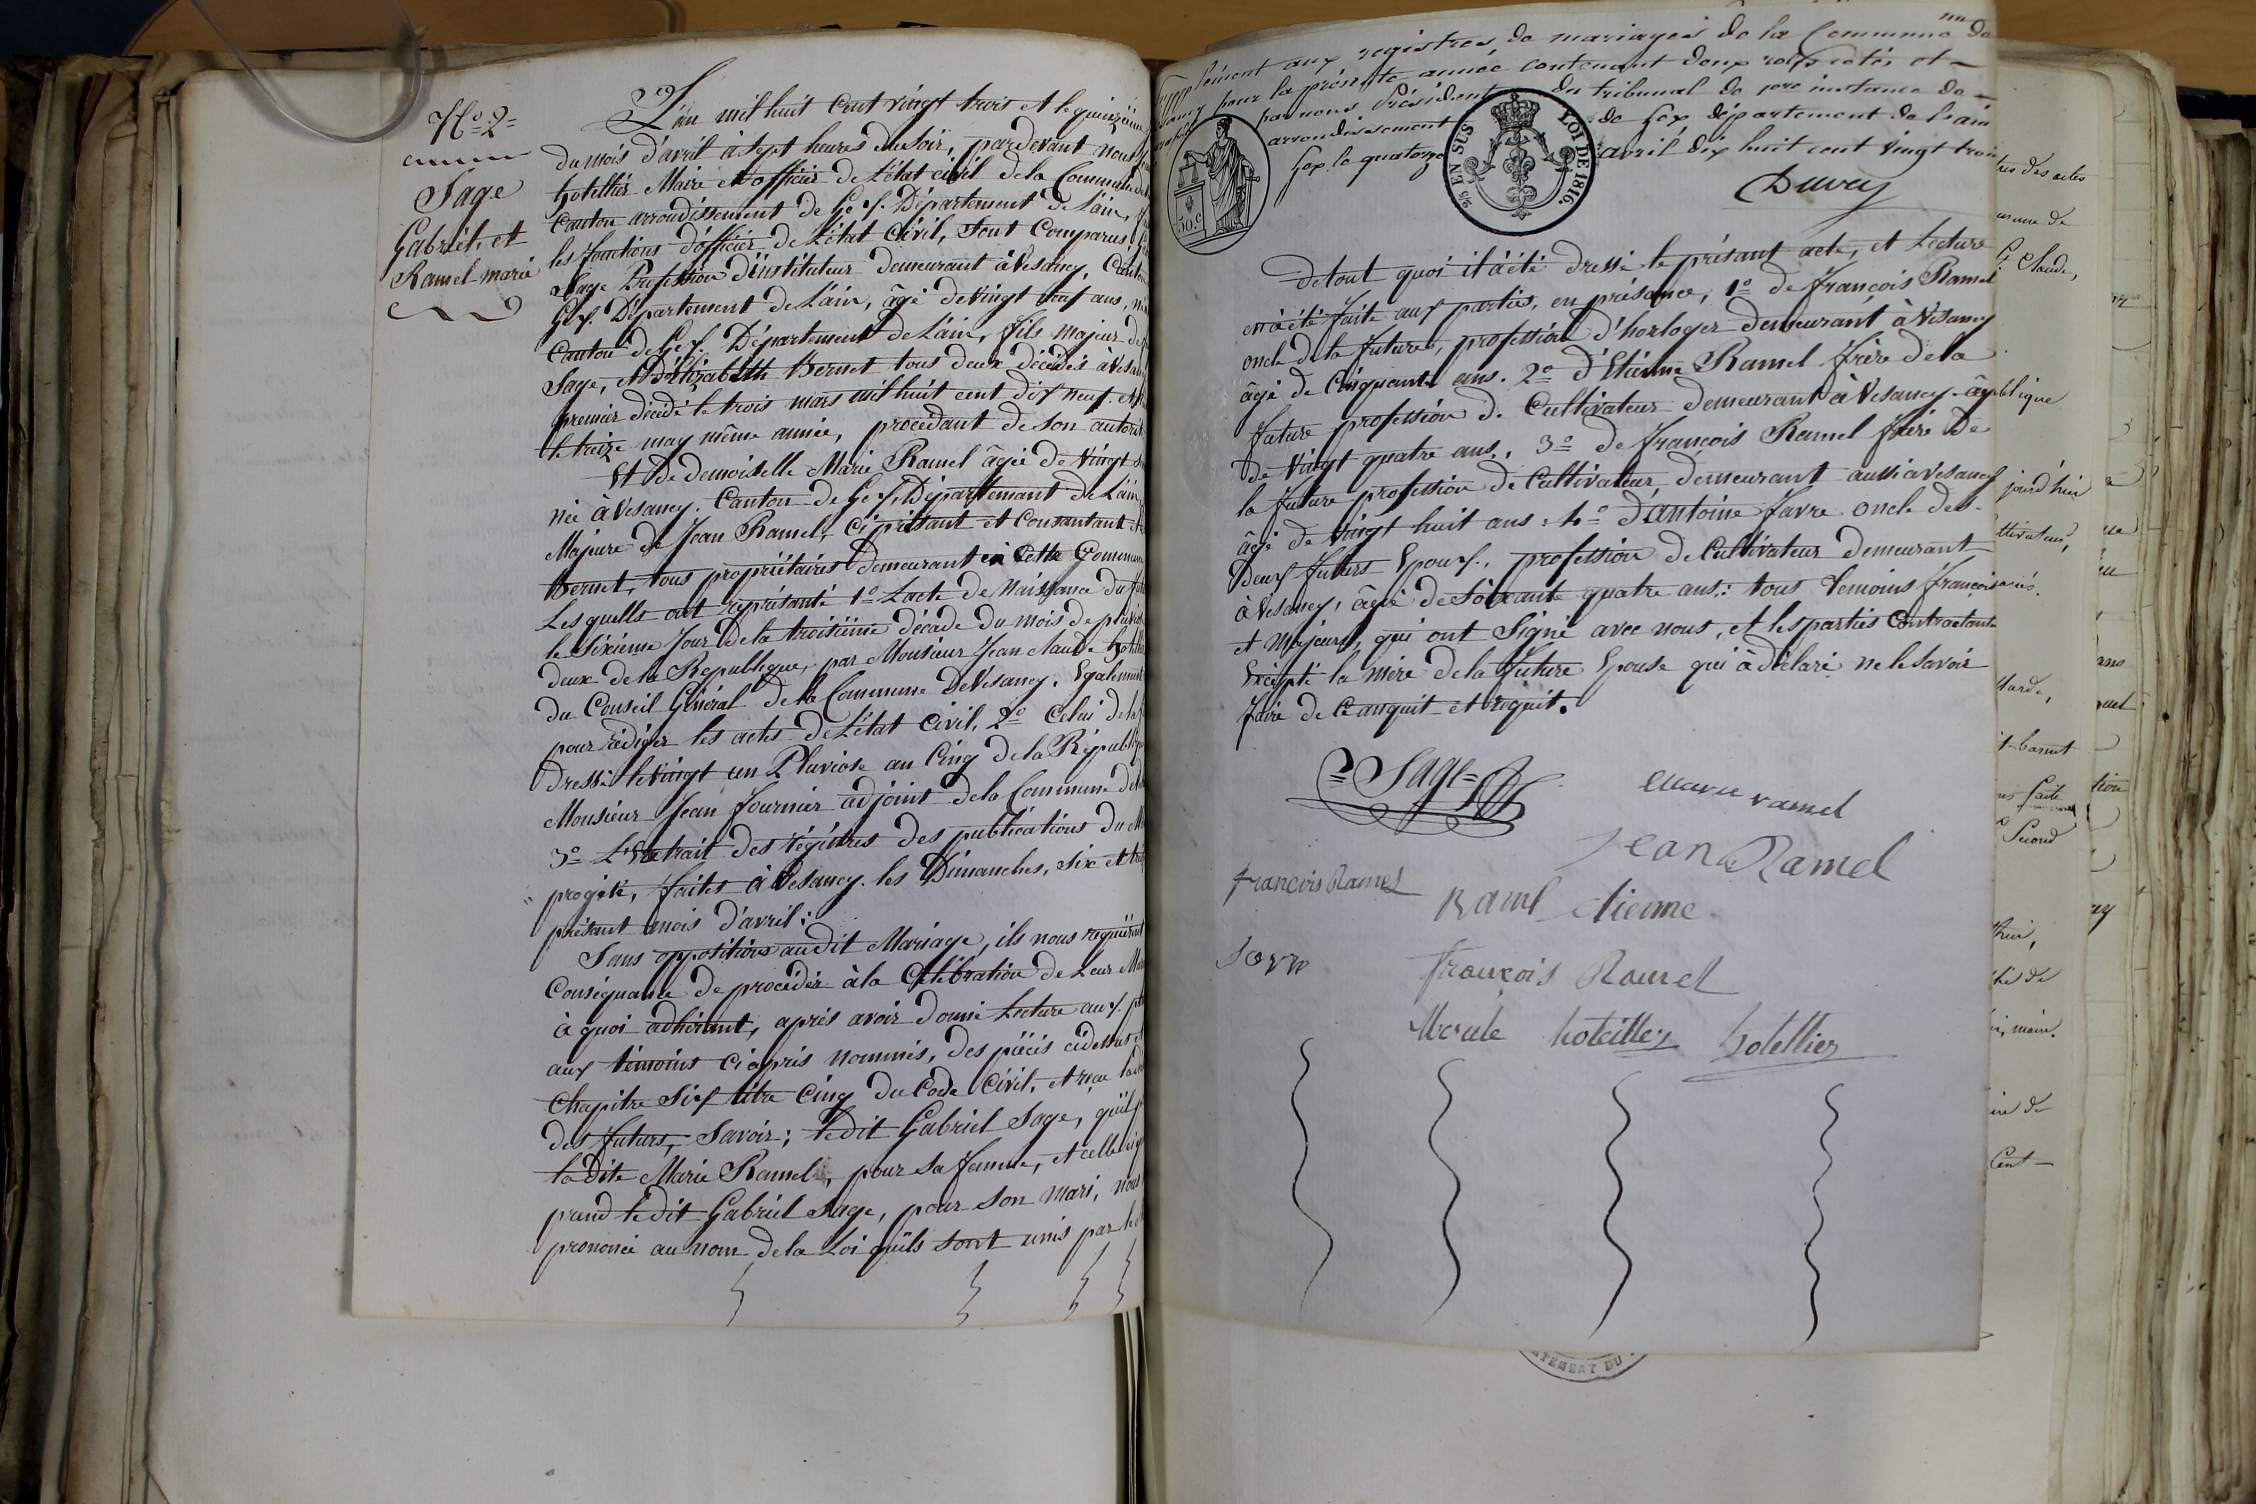 N.o 2=
Sage
Gabriel, et
Ramel marie
L'an mil huit cent vingt trois et le quinzième
du mois d'avril à sept heures du soir, pardevant nous
hotellier Maire et officier de L'état civil de la Commune de
Canton arrondissement de Gex. Département de L'ain,
les fonctions d'officier de L'état Civil, sont Comparus
Sage Profession d'instituteur demeurant à Vesancy, Canton
Gex. Département de L'ain, âgé de vingt neuf ans,
Canton de Gex Département de L'ain, fils majeur de
Sage, et D'Elizabeth Vernet tous deux décédés à Vesancy
premier décédé le trois mars mil huit cent dix neuf. et
le treize may même année, procédant de son autorité
Et de demoiselle Marie Ramel âgée de vingt
née à Vesancy. Canton de Gex, Département de L'ain
Majeure de Jean Ramel, ci présant et consantant et
Vernet, tous propriétaires demeurant en cette Commune
Lesquells ont représanté 1.o L'acte de Naissance du
le sixième jour de la troisième décade du mois de pluviose
deux de la République, par Monsieur Jean Claude hotellier
du Conseil Général de la Commune de Vesancy. Egalement
pour rédiger les actes de L'état Civil, 2.o Celui de la
dressé le vingt un Pluviose an Cinq de la République
Monsieur Jean fournier adjoint de la Commune de
3.o L'Extrait des régitres des publications du
progité, faites à Vesancy. les Dimanches, six et
présant mois d'avril:
Sans oppositions audit Mariage, ils nous requièrent
Conséquance de procéder à la Célébration de Leur
à quoi adhérant, après avoir donné Lecture aux
aux témoins ci après nommés, des pièces cidessus
Chapitre six titre Cinq du Code Civil, et reçu la
des futurs, Savoir; ledit Gabriel Sage, qu'il
la dite Marie Ramel, pour sa femme, et celle ci
prend ledit Gabriel Sage, pour son mari, nous
prononcé au nom de la Loi qu'ils sont unis par le
Supplément aux registres de mariages de la Commune de
pour la présente année contenant deux rolles cotés et
par nous Président du tribunal de 1ere instance de
arrondissement de Gex département de l'ain
Gex le quatorze avril dix huit cent vingt trois
Duvey
50.c
EN SUS
LOI DE 1816.
De tout quoi il à été dressé le présant acte, et Lecture
en à été faite aux parties, en présance, 1.o de françois Ramel
oncle de la future, profession d'horloger demeurant à Vesancy
âgé de Cinquante ans. 2.o d'Etienne Ramel frère de la
future profession de Cultivateur demeurant à Vesancy âgé
de vingt quatre ans., 3.o de françois Ramel frère de
la future profession de Cultivateur, demeurant aussi à Vesancy
âgé de vingt huit ans: 4.o d'antoine favre oncle des
deux futurs Epoux., profession de Cultivateur demeurant
à Vesancy, âgé de soixante quatre ans.: tous temoins françois
et majeurs, qui ont signé avec nous, et les parties Contractants
Excepté la mère de la future Epouse qui à déclaré ne le savoir
faire de ce anquit et requit.
Sage
marie ramel
Jean Ramel
françois Ramel
Raml etienne
françois Ramel
hotellier